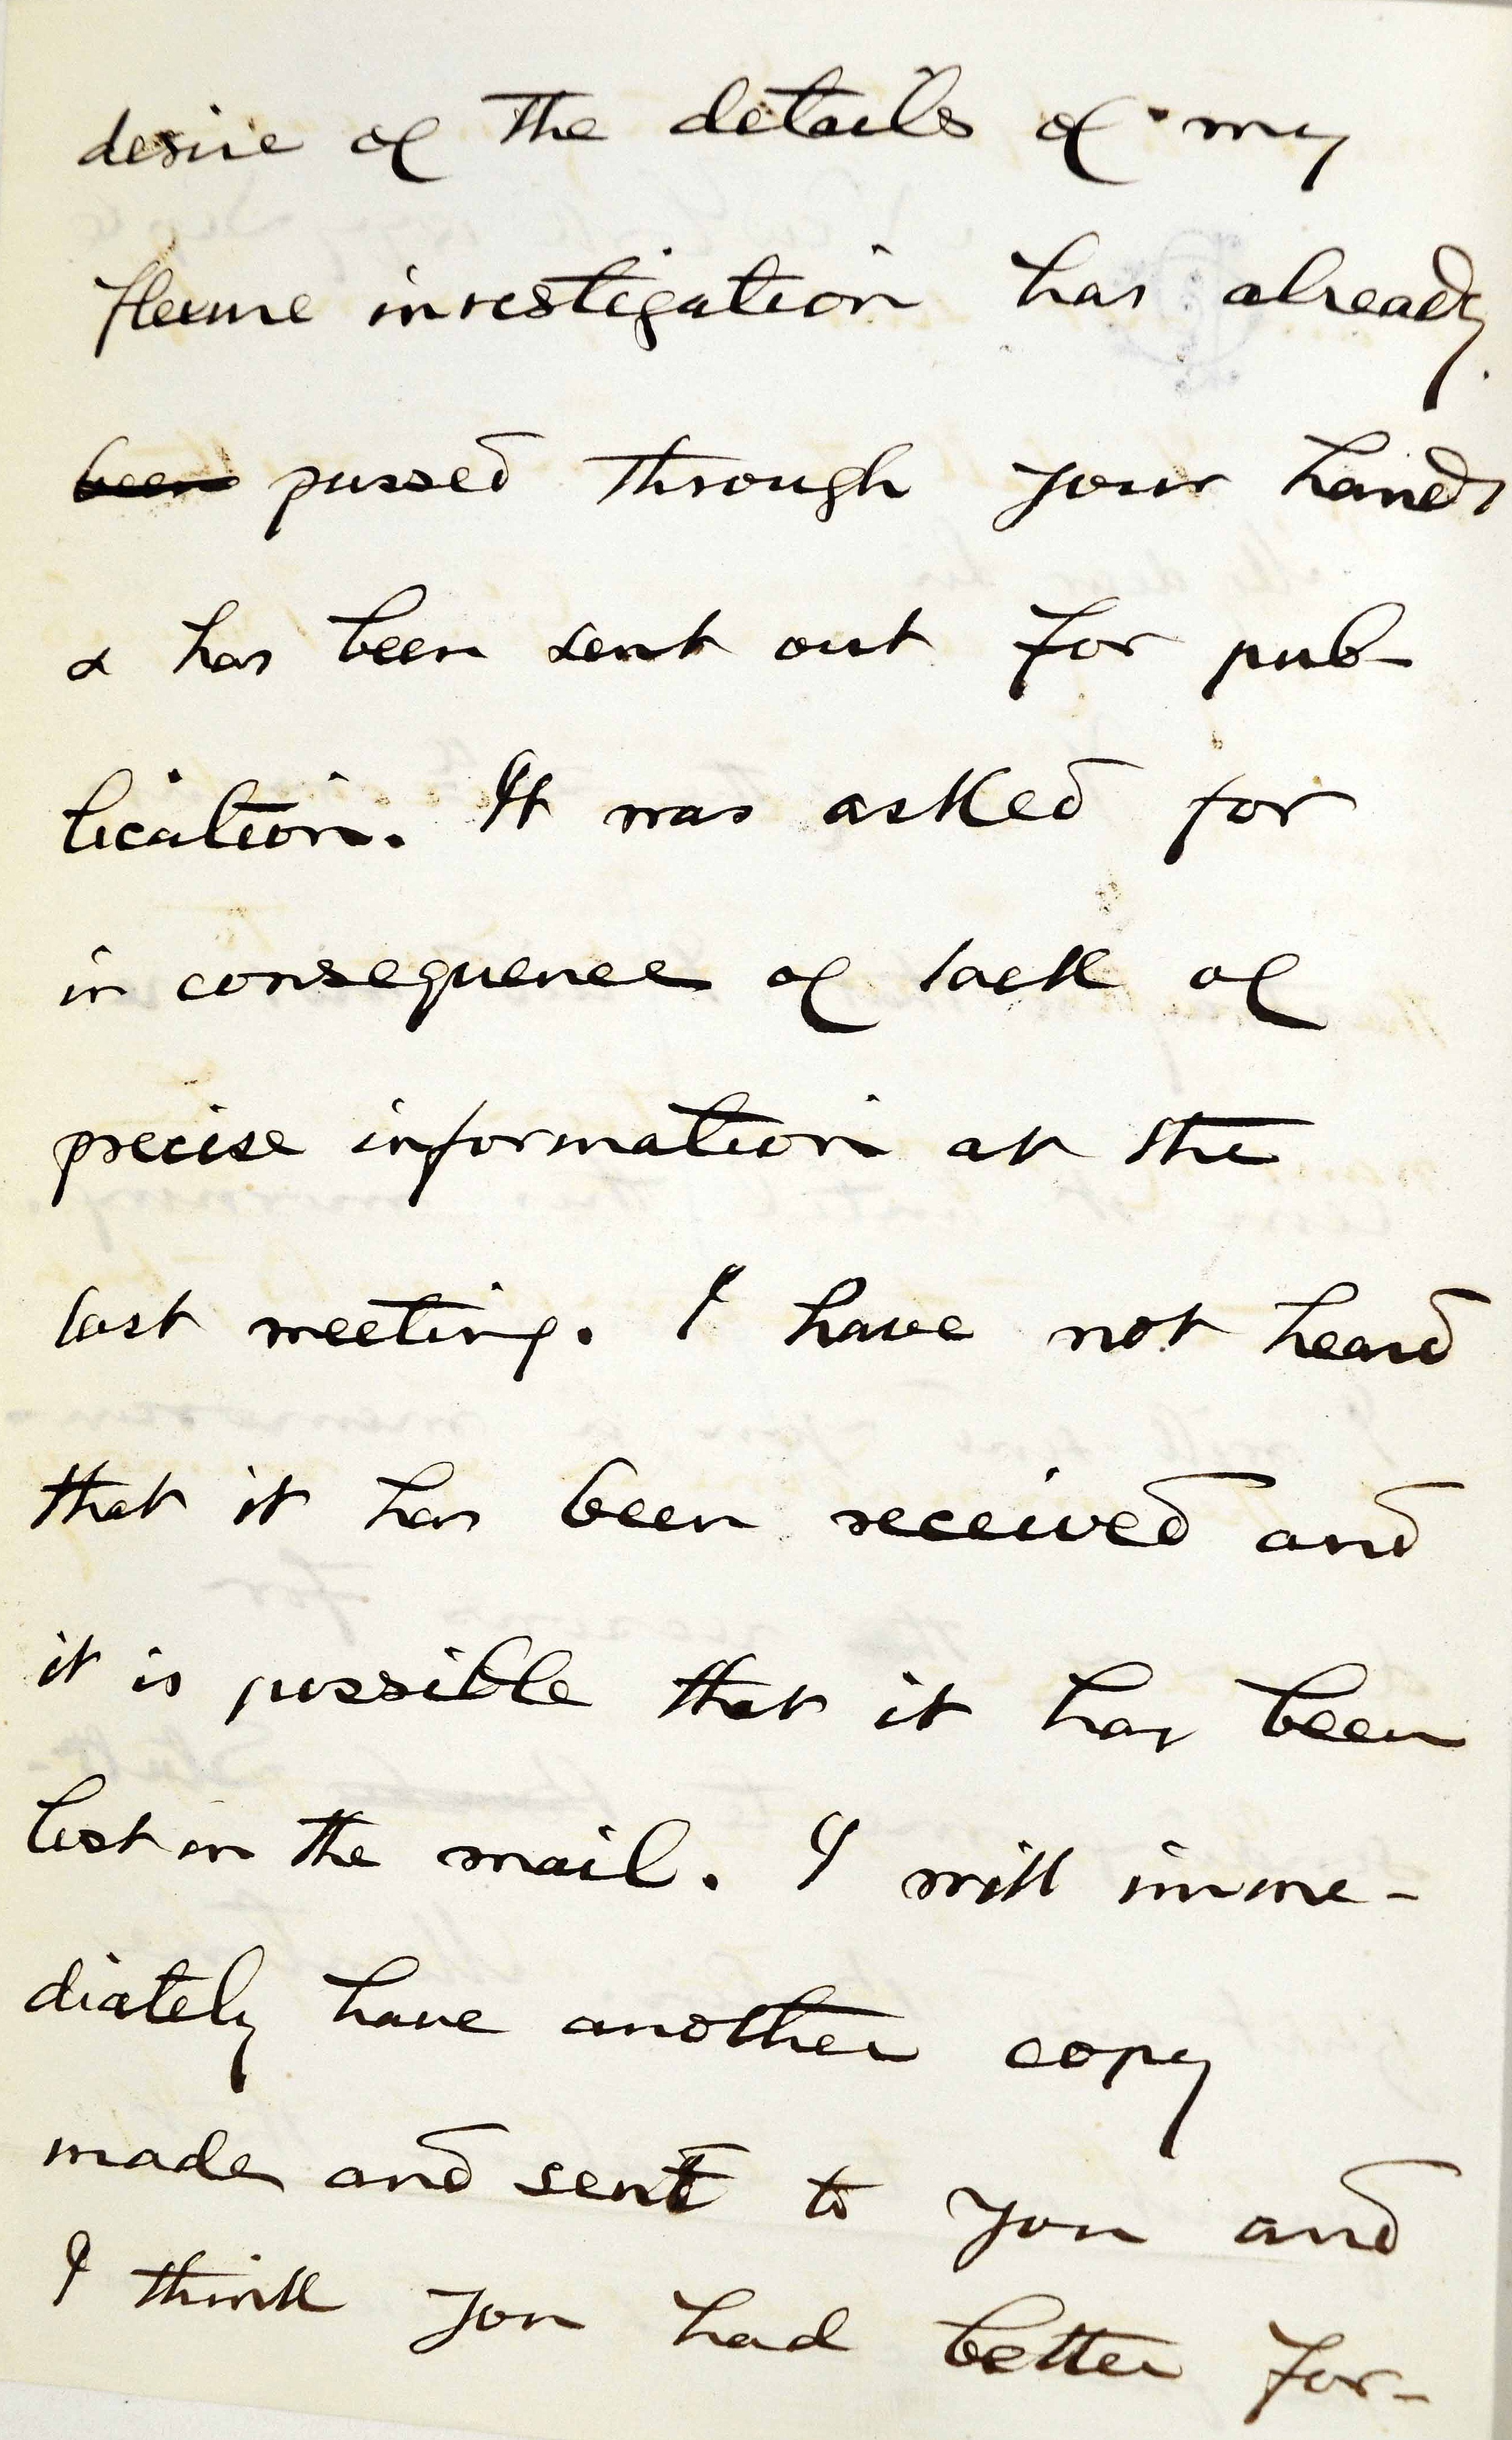 desire of the details of my
flexure investigation has already
been passed through your hands
& has been sent out for pub-
lication. It was asked for
in consequence of lack of
precise information at the
last meeting. I have not heard
that it has been received and
it is possible that it has been
lost in the mail. I will imme-
diately have another copy
made and sent to you and
I think you had better for-